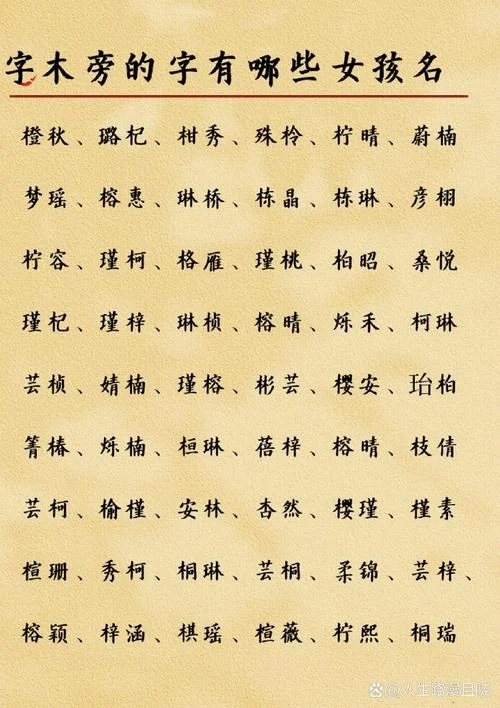 字木旁的字有哪些女孩名
橙秋、璐杞、柑秀、殊柃、柠晴、蔚楠
梦瑶、榕惠、琳桥、栋晶、栋琳、彦栩
柠容、瑾柯、格雁、瑾桃、柏昭、桑悦
瑾杞、瑾梓、琳桢、榕晴、烁禾、柯琳
芸桢、婧楠、瑾榕、彬芸、樱安、珆柏
箐椿、烁楠、桓琳、蓓梓、榕晴、枝倩
芸柯、榆槿、安林、杏然、樱瑾、槿素
楦珊、秀柯、桐琳、芸桐、柔锦、芸梓、
榕颖、梓涵、棋瑶、楦薇、柠熙、桐瑞
@人生路漫日陡